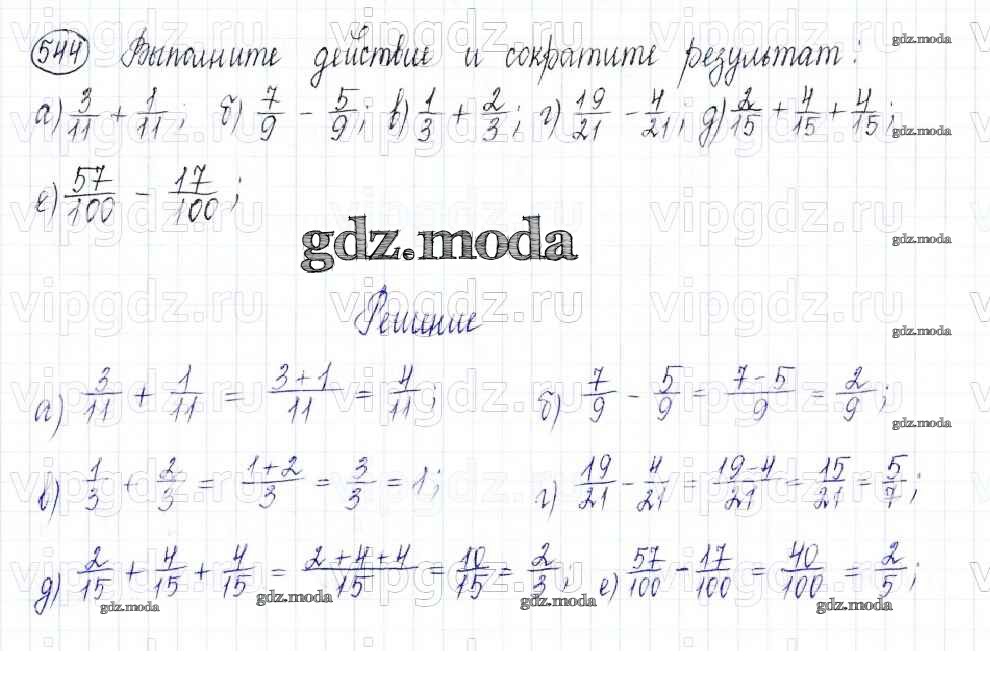 544 Выполните действие и сократите результат: gdz.moda
а) 3/11 + 1/11; б) 7/9 - 5/9; в) 1/3 + 2/3; г) 19/21 - 4/21; д) 2/15 + 4/15 + 4/15; gdz.moda
е) 57/100 - 17/100;
gdz.moda gdz.moda
vipgdz.ru vipgdz.ru vipgdz.ru
Решение gdz.moda
а) 3/11 + 1/11 = 3+1/11 = 4/11; б) 7/9 - 5/9 = 7-5/9 = 2/9;
gdz.moda
в) 1/3 + 2/3 = 1+2/3 = 3/3 = 1; г) 19/21 - 4/21 = 19-4/21 = 15/21 = 5/7;
д) 2/15 + 4/15 + 4/15 = 2+4+4/15 = 10/15 = 2/3; е) 57/100 - 17/100 = 40/100 = 2/5;
gdz.moda gdz.moda gdz.moda gdz.moda